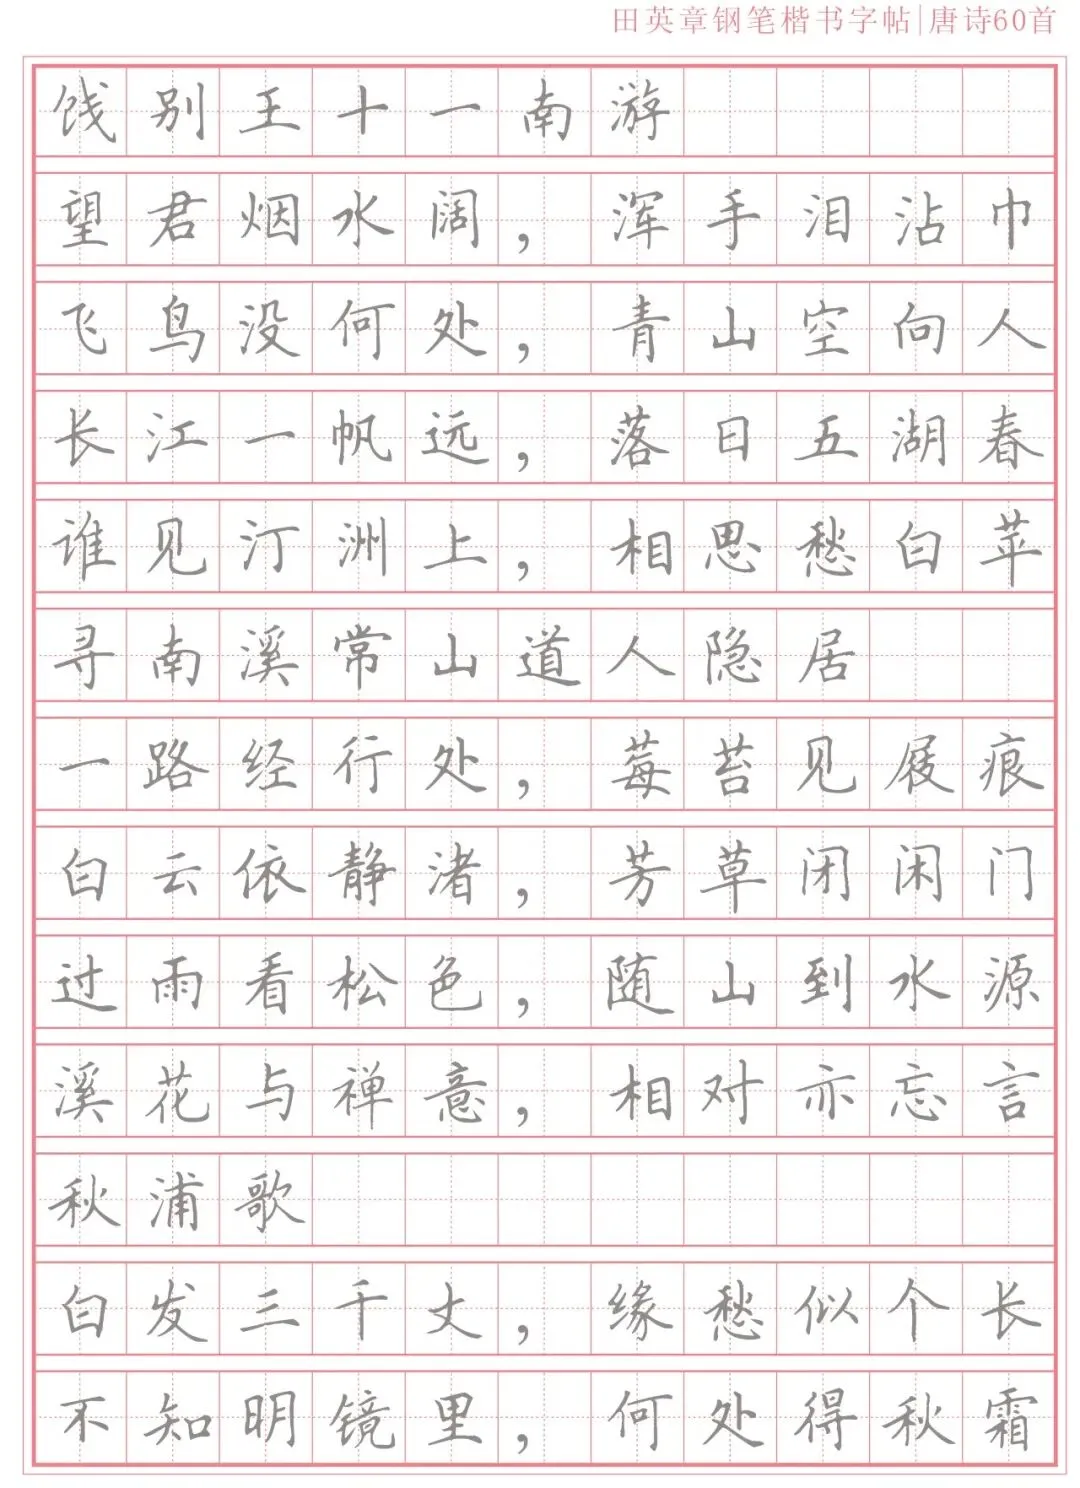 田英章钢笔楷书字帖|唐诗60首
饯别王十一南游
望君烟水阔，浑手泪沾巾
飞鸟没何处，青山空向人
长江一帆远，落日五湖春
谁见汀洲上，相思愁白苹
寻南溪常山道人隐居
一路经行处，莓苔见屐痕
白云依静渚，芳草闭闲门
过雨看松色，随山到水源
溪花与禅意，相对亦忘言
秋浦歌
白发三千丈，缘愁似个长
不知明镜里，何处得秋霜